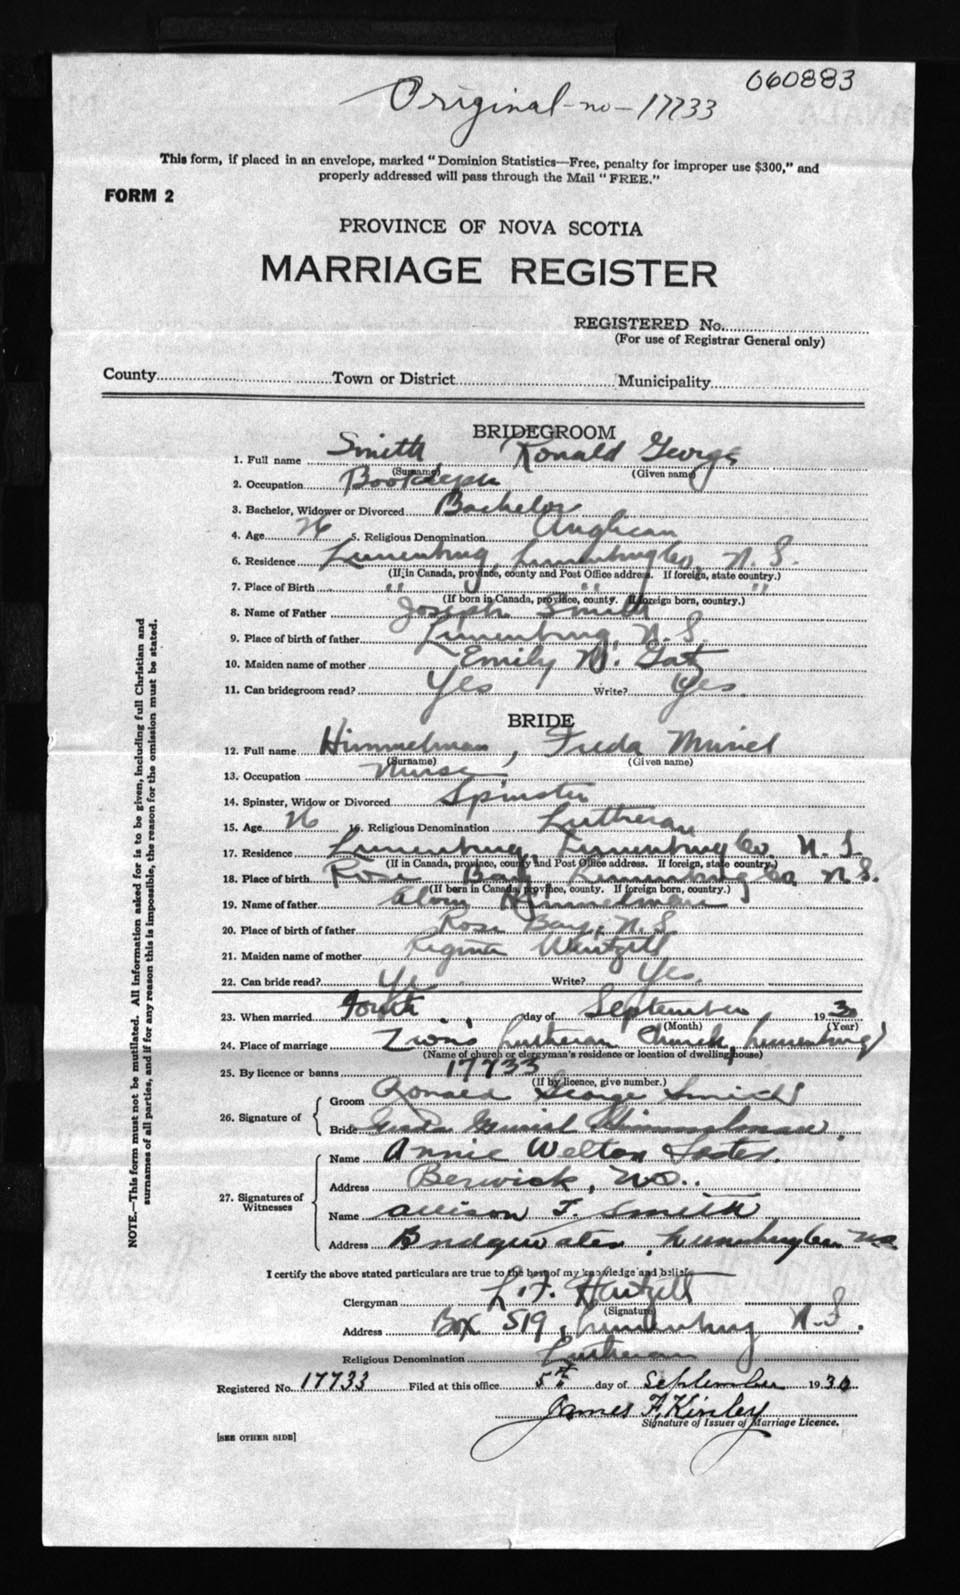 060883
Original - no - 17733
This form, if placed in an envelope, marked "Dominion Statistics—Free, penalty for improper use $300," and
properly addressed will pass through the Mail "FREE."
FORM 2
PROVINCE OF NOVA SCOTIA
MARRIAGE REGISTER
REGISTERED No.
(For use of Registrar General only)
County Town or District Municipality
BRIDEGROOM
1. Full name Smith Ronald George
(Surname) (Given name)
2. Occupation
3. Bachelor, Widower or Divorced Bachelor
4. Age 26 5. Religious Denomination Anglican
6. Residence Lunenburg, Lunenburg Co, N. S.
(If in Canada, province, county and Post Office address. If foreign, state country.)
7. Place of Birth " " "
(If born in Canada, province, county. If foreign born, country.)
8. Name of Father Joseph Smith
9. Place of birth of father Lunenburg, N. S.
10. Maiden name of mother Emily
11. Can bridegroom read? Yes Write? Yes.
BRIDE
12. Full name Himmelman, Freda Muriel
(Surname) (Given name)
13. Occupation Nurse
14. Spinster, Widow or Divorced Spinster
15. Age 26 16. Religious Denomination Lutheran
17. Residence Lunenburg, Lunenburg Co. N. S.
(If in Canada, province, county and Post Office address. If foreign, state country.)
18. Place of birth Rose Bay, Lunenburg Co, N. S.
(If born in Canada, province, county. If foreign born, country.)
19. Name of father Alvin Himmelman
20. Place of birth of father Rose Bay, N. S.
21. Maiden name of mother Regina Wentzell
22. Can bride read? Yes Write? Yes.
23. When married Fourth day of September 1930
(Month) (Year)
24. Place of marriage Zion's Lutheran Church, Lunenburg
(Name of church or clergyman's residence or location of dwelling house)
25. By licence or banns 17733
(If by licence, give number.)
26. Signature of
Groom Ronald George Smith
Bride Freda Muriel Himmelman.
27. Signatures of Witnesses
Name Annie Welton
Address Berwick, N.S.
Name Allison F. Smith
Address Bridgewater, Lunenburg Co. N.S.
I certify the above stated particulars are true to the best of my knowledge and belief.
Clergyman L. F. Hartzell
(Signature)
Address Box 519, Lunenburg N. S.
Religious Denomination Lutheran
Registered No. 17733 Filed at this office 5th day of September 1930
James F. Kinley
Signature of Issuer of Marriage Licence.
[SEE OTHER SIDE]
NOTE.—This form must not be mutilated. All information asked for is to be given, including full Christian and
surnames of all parties, and if for any reason this is impossible, the reason for the omission must be stated.